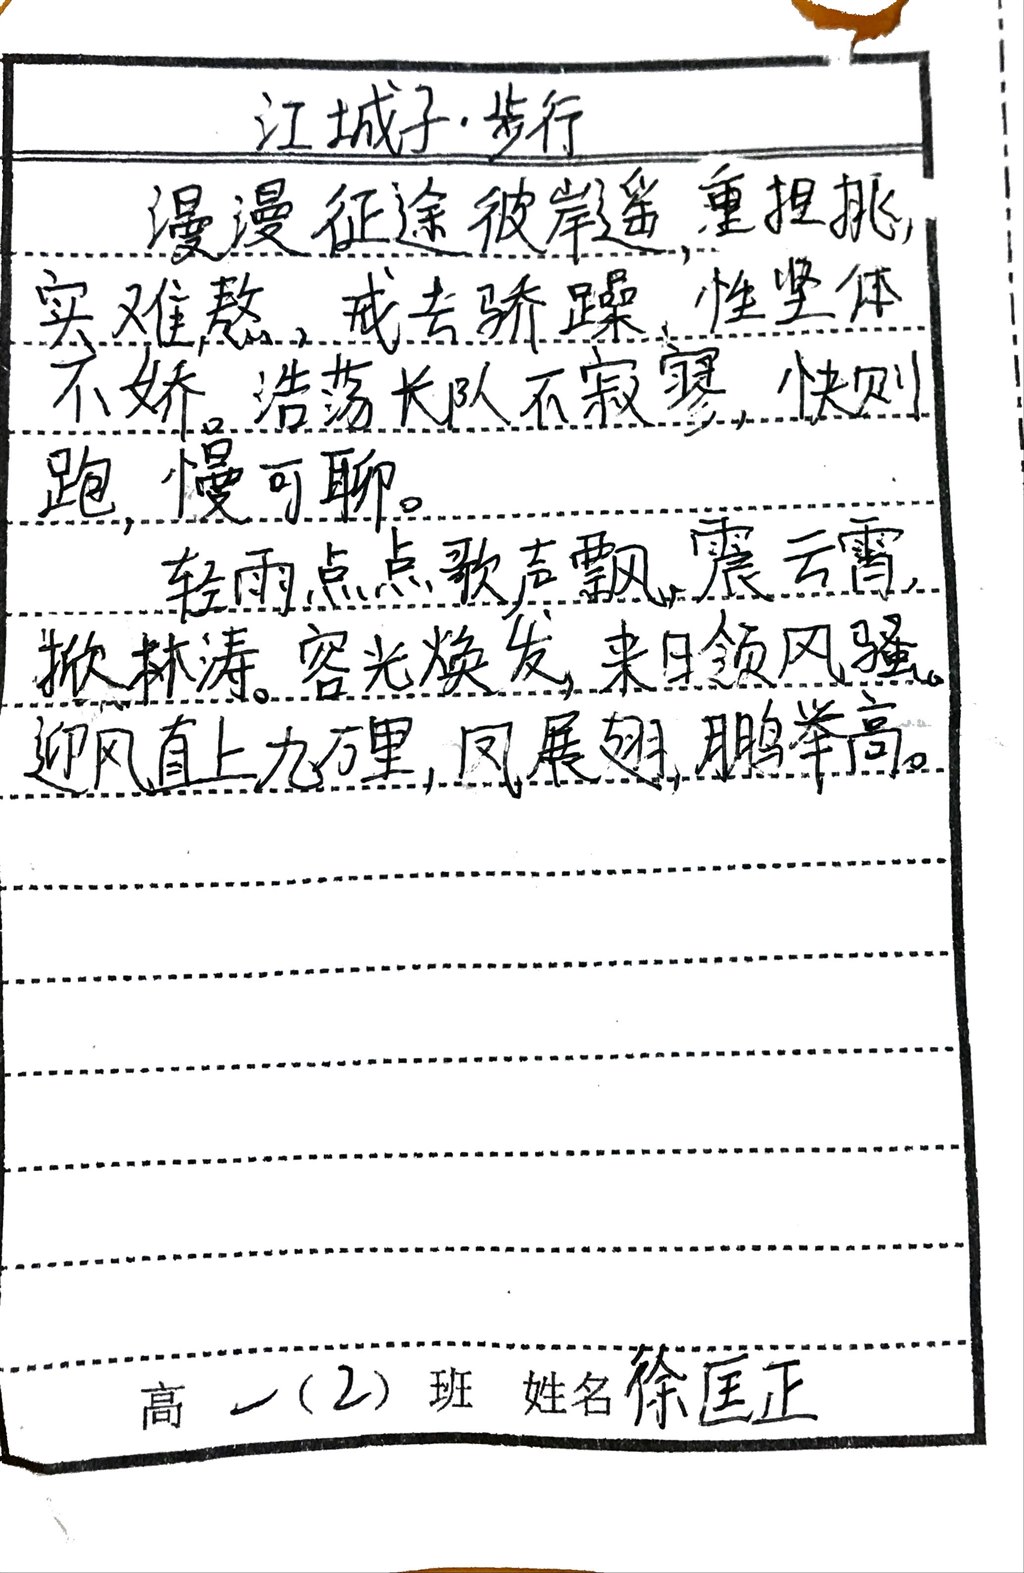 江城子·步行
漫漫征途彼岸遥,重担挑,
实难熬,戒去骄躁,性坚体
不娇。浩荡长队不寂寥,快则
跑,慢可聊。
轻雨点点歌声飘,震云霄,
掀林涛。容光焕发,来日领风骚。
迎风直上九万里,凤展翅,鹏举高。
高一(2)班 姓名徐匡正